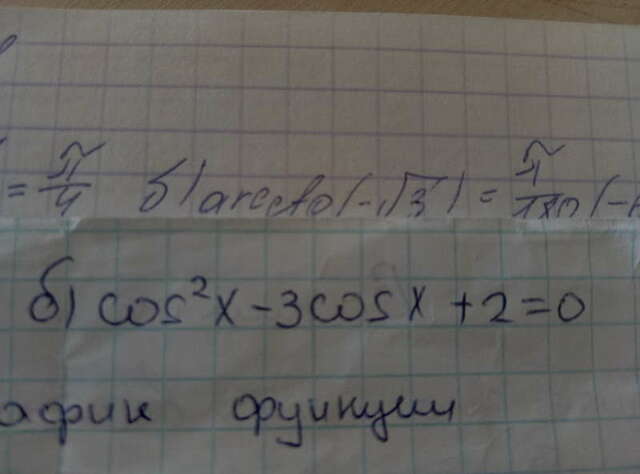 = π/4 б) arcctg(-√3) = π/180 (-
б) cos²x - 3cosx + 2 = 0
афик функции